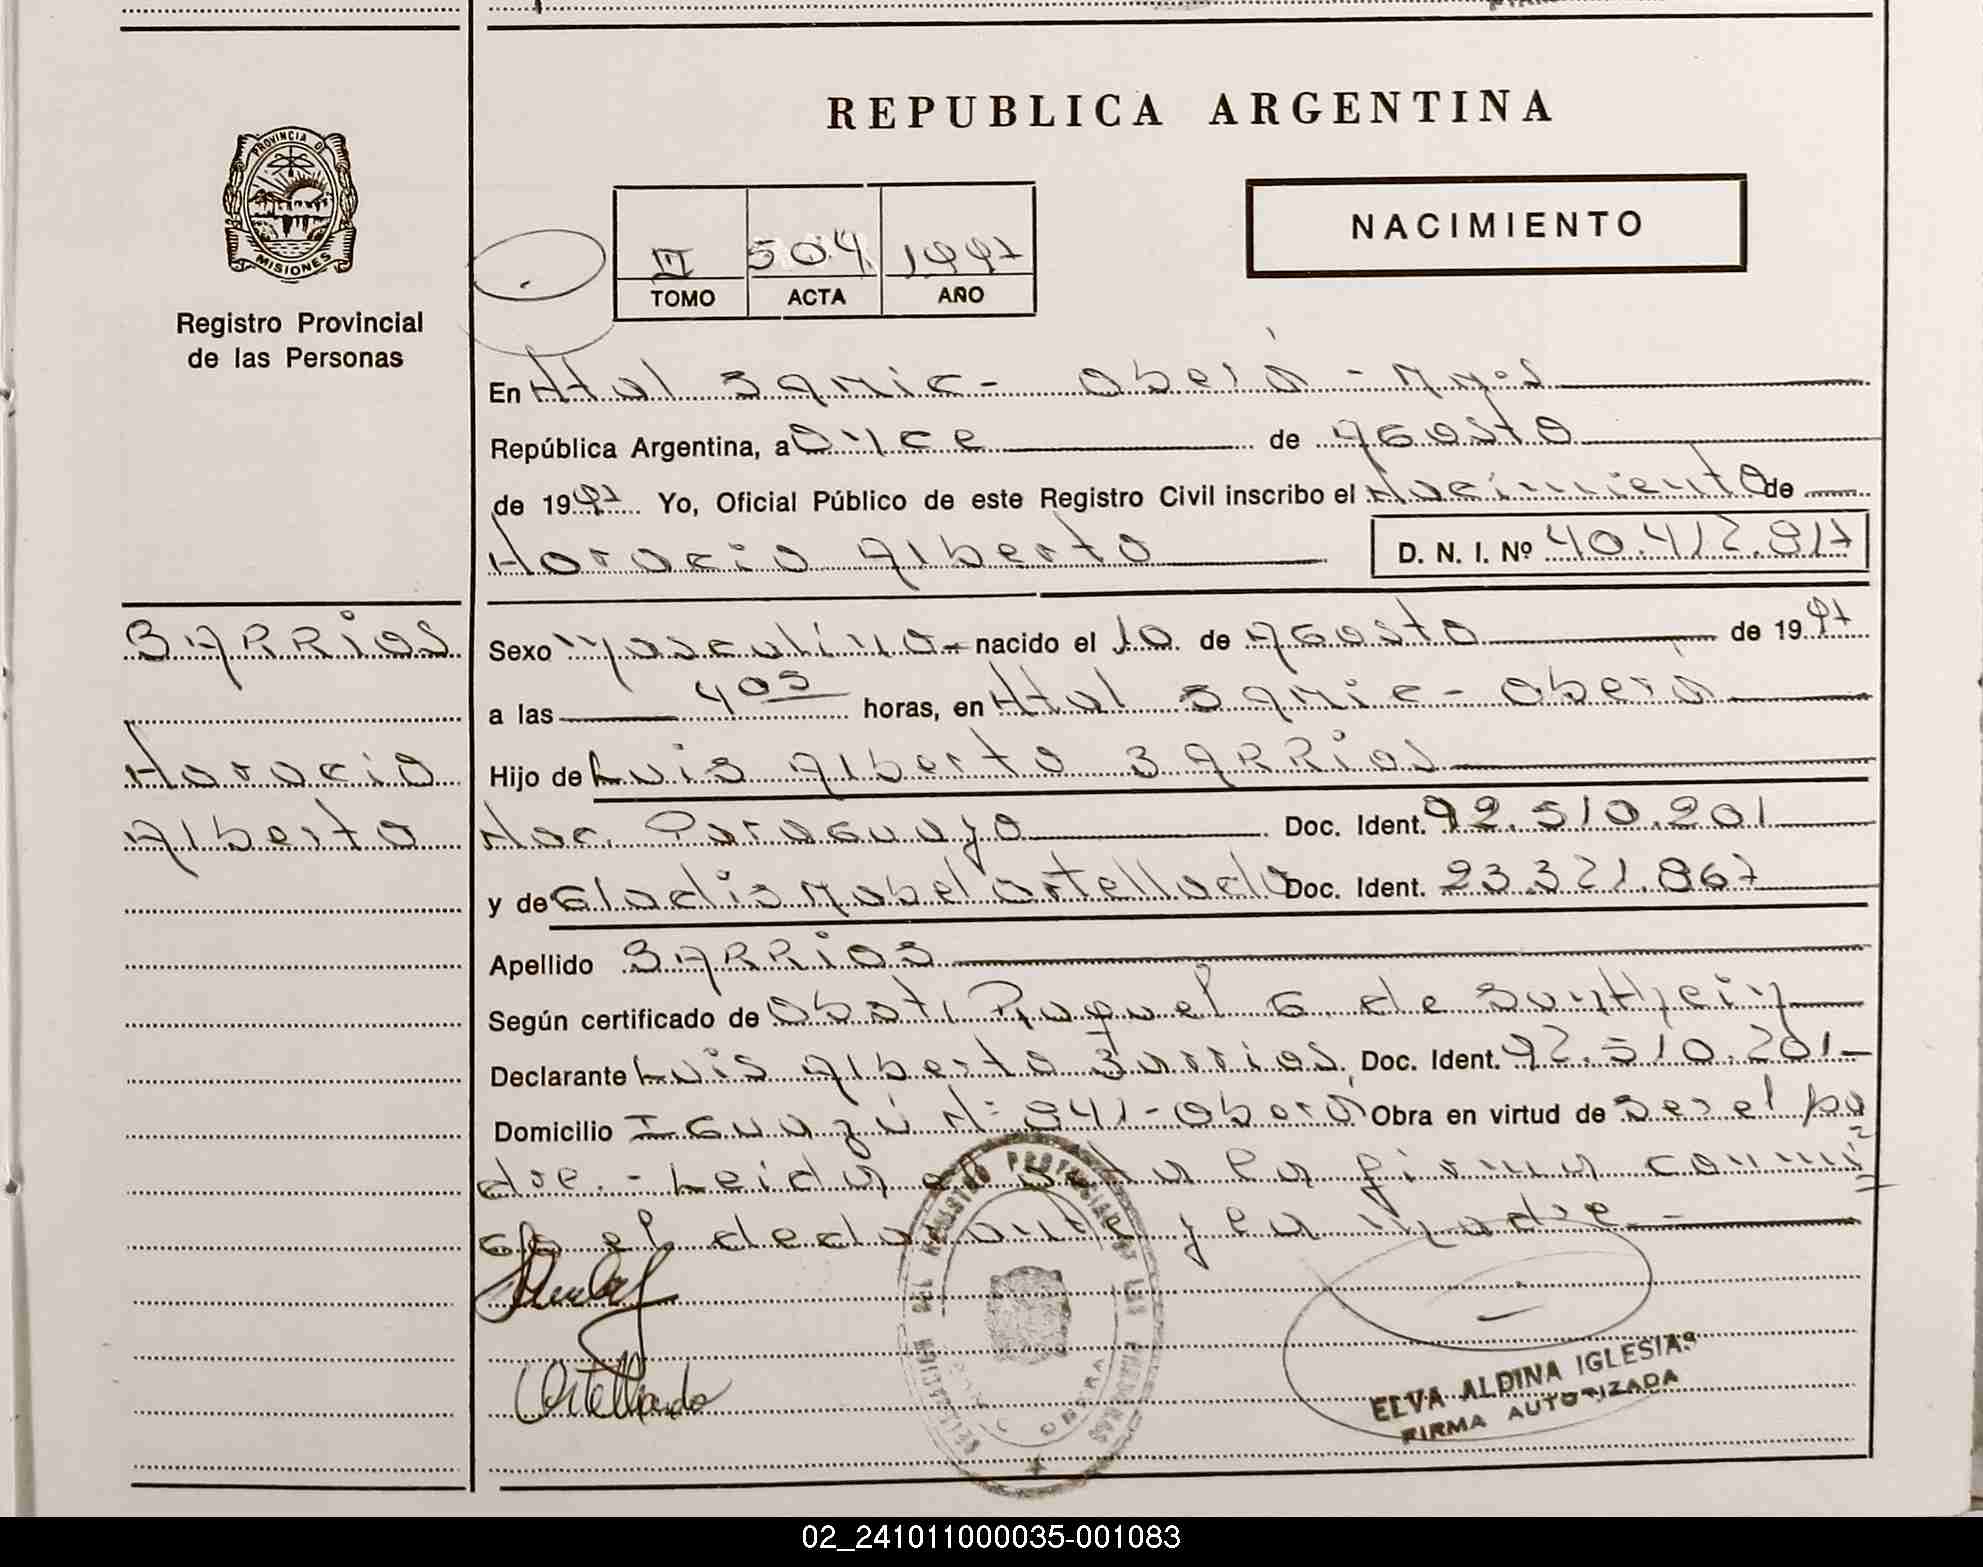 REPUBLICA ARGENTINA
PROVINCIA D
MISIONES
Registro Provincial
de las Personas
NACIMIENTO
III 504 1997
TOMO ACTA AÑO
En Htal Samic - Oberá - Mnes
República Argentina, a Once de Agosto
de 1997 Yo, Oficial Público de este Registro Civil inscribo el Nacimiento de
Horacio Alberto D. N. I. Nº 40.412.817
BARRIOS
Horacio
Alberto
Sexo Masculino - nacido el 10 de Agosto de 1997
a las 4 05 horas, en Htal Samic - Oberá
Hijo de Luis Alberto BARRIOS
Nac. Paraguaya Doc. Ident. 92.510.201
y de Gladis Mabel Ortellado Doc. Ident. 23.321.867
Apellido BARRIOS
Según certificado de Obst. Raquel G. de
Declarante Luis Alberto Barrios, Doc. Ident. 92.510.201 -
Domicilio Iguazú Nº 941 - Oberá Obra en virtud de ser el pa
dre. - Leida el acta la firman conmi
go el declarante y la madre. -
Ortellado
OBERA
ELVA ALDINA IGLESIAS
FIRMA AUTORIZADA
02_241011000035-001083